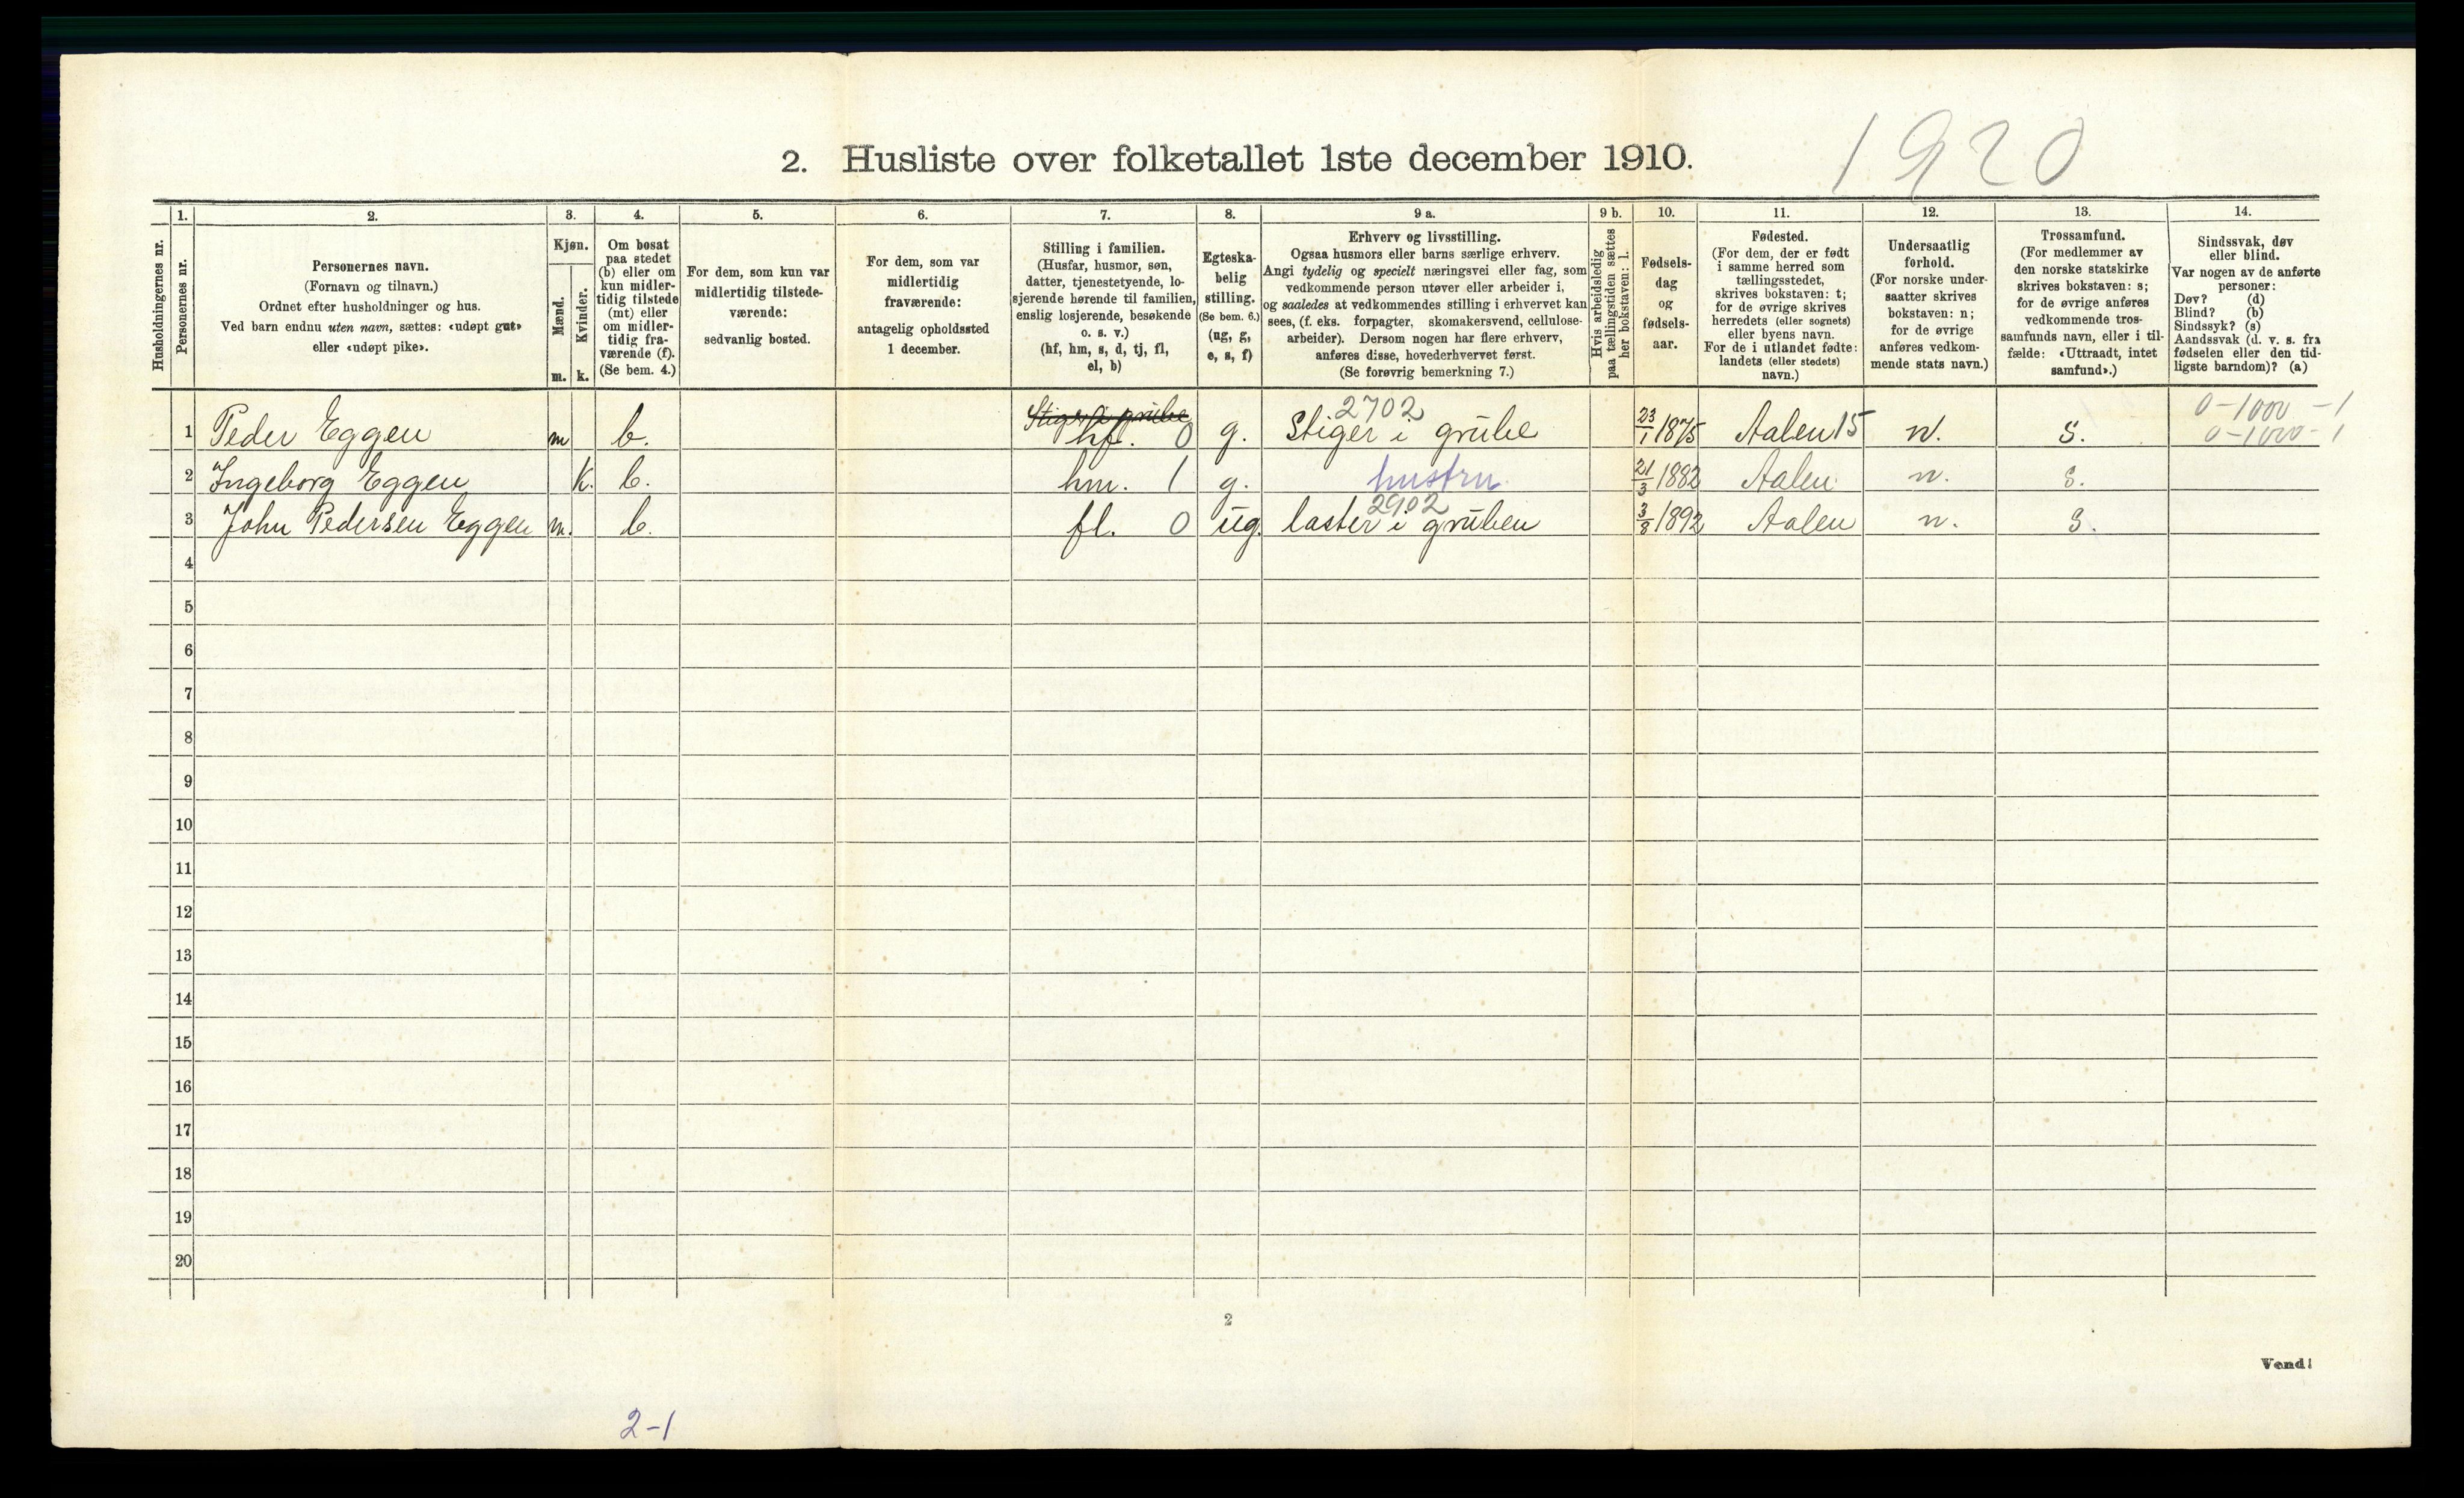 1920
2. Husliste over folketallet 1ste december 1910.
Husholdningernes nr.
1.
Personernes nr.
2.
Personernes navn.
(Fornavn og tilnavn.)
Ordnet efter husholdninger og hus.
Ved barn endnu uten navn, sættes: «udøpt gut»
eller «udøpt pike».
3.
Kjøn.
Mænd.
Kvinder.
m. k.
4.
Om bosat
paa stedet
(b) eller om
kun midler-
tidig tilstede
(mt) eller
om midler-
tidig fra-
værende (f).
(Se bem. 4.)
5.
For dem, som kun var
midlertidig tilstede-
værende:
sedvanlig bosted.
6.
For dem, som var
midlertidig
fraværende:
antagelig opholdssted
1 december.
7.
Stilling i familien.
(Husfar, husmor, søn,
datter, tjenestetyende, lo-
sjerende hørende til familien,
enslig losjerende, besøkende
o. s. v.)
(hf, hm, s, d, tj, fl,
el, b)
8.
Egteska-
belig
stilling.
(Se bem. 6.)
(ug, g,
e, s, f)
9 a.
Erhverv og livsstilling.
Ogsaa husmors eller barns særlige erhverv.
Angi tydelig og specielt næringsvei eller fag, som
vedkommende person utøver eller arbeider i,
og saaledes at vedkommendes stilling i erhvervet kan
sees, (f. eks. forpagter, skomakersvend, cellulose-
arbeider). Dersom nogen har flere erhverv,
anføres disse, hovederhvervet først.
(Se forøvrig bemerkning 7.)
9 b.
Hvis arbeidsledig
paa tællingstiden sættes
her bokstaven: l.
10.
Fødsels-
dag
og
fødsels-
aar.
11.
Fødested.
(For dem, der er født
i samme herred som
tællingsstedet,
skrives bokstaven: t;
for de øvrige skrives
herredets (eller sognets)
eller byens navn.
For de i utlandet fødte:
landets (eller stedets)
navn.)
12.
Undersaatlig
forhold.
(For norske under-
saatter skrives
bokstaven: n;
for de øvrige
anføres vedkom-
mende stats navn.)
13.
Trossamfund.
(For medlemmer av
den norske statskirke
skrives bokstaven: s;
for de øvrige anføres
vedkommende tros-
samfunds navn, eller i til-
fælde: «Uttraadt, intet
samfund».)
14.
Sindssvak, døv
eller blind.
Var nogen av de anførte
personer:
Døv? (d)
Blind? (b)
Sindssyk? (s)
Aandssvak (d. v. s. fra
fødselen eller den tid-
ligste barndom)? (a)
Stiger i grube 2702 0-1000-1
1 Peder Eggen m b. hf. 0 g. Stiger i grube 23/1 1875 Aalen 15 n. s. 0-1000-1
2 Ingeborg Eggen k. b. hm. 1 g. hustru 21/3 1882 Aalen n. s.
2902
3 John Pedersen Eggen m. b. fl. 0 ug. laster i gruben 3/8 1892 Aalen n. s.
4
5
6
7
8
9
10
11
12
13
14
15
16
17
18
19
20
2
Vend!
2-1